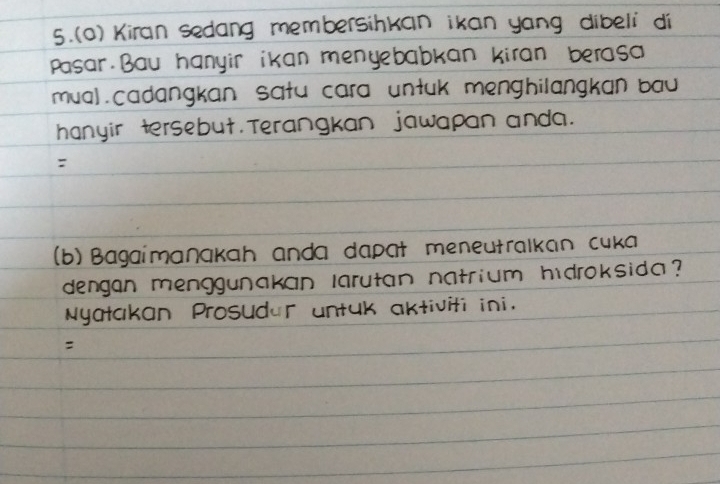 5.(a) Kiran sedang membersihkan ikan yang dibeli di
Pasar. Bau hanyir ikan menyebabkan kiran berasa
mual. cadangkan satu cara untuk menghilangkan bau
hanyir tersebut. Terangkan jawapan anda.
=
(b) Bagaimanakah anda dapat meneutralkan cuka
dengan menggunakan larutan natrium hidroksida?
Nyatakan Prosudur untuk aktiviti ini.
=